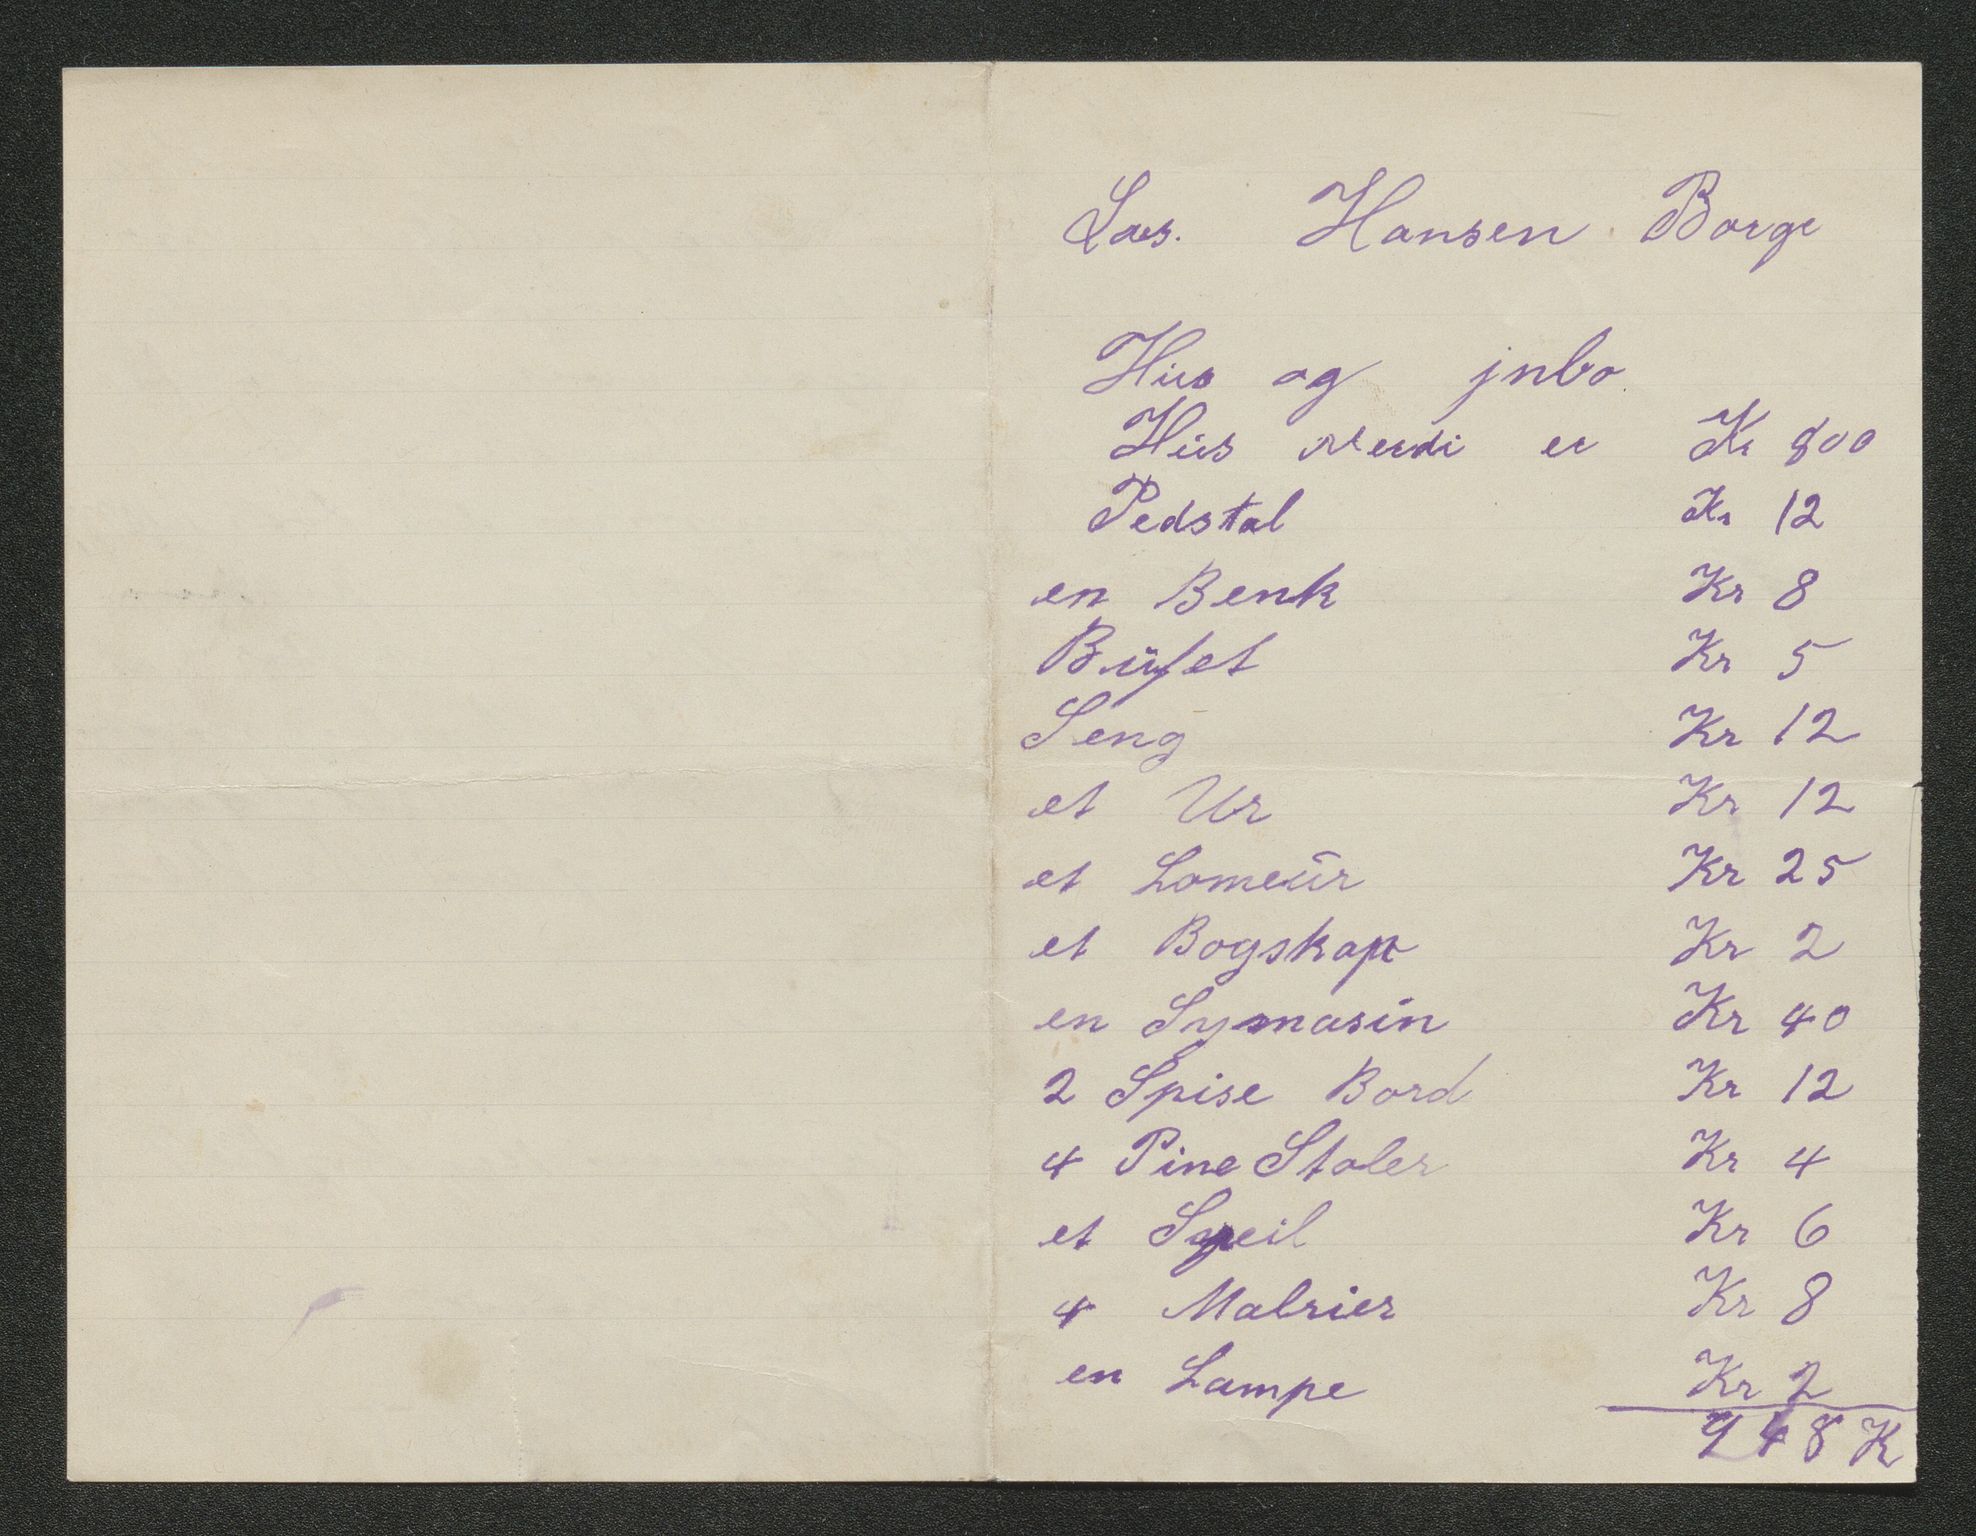 Lars. Hansen Borge
Hus og jnbo
Hus Verdi er Kr 800
Pedstal Kr 12
en Benk Kr 8
Büfet Kr 5
Seng Kr 12
et Ur Kr 12
et Lomeūr Kr 25
et Bogskap Kr 2
en Symasin Kr 40
2 Spise Bord Kr 12
4 Pine Stoler Kr 4
et Speil Kr 6
4 Malrier Kr 8
en Lampe Kr 2
948 K